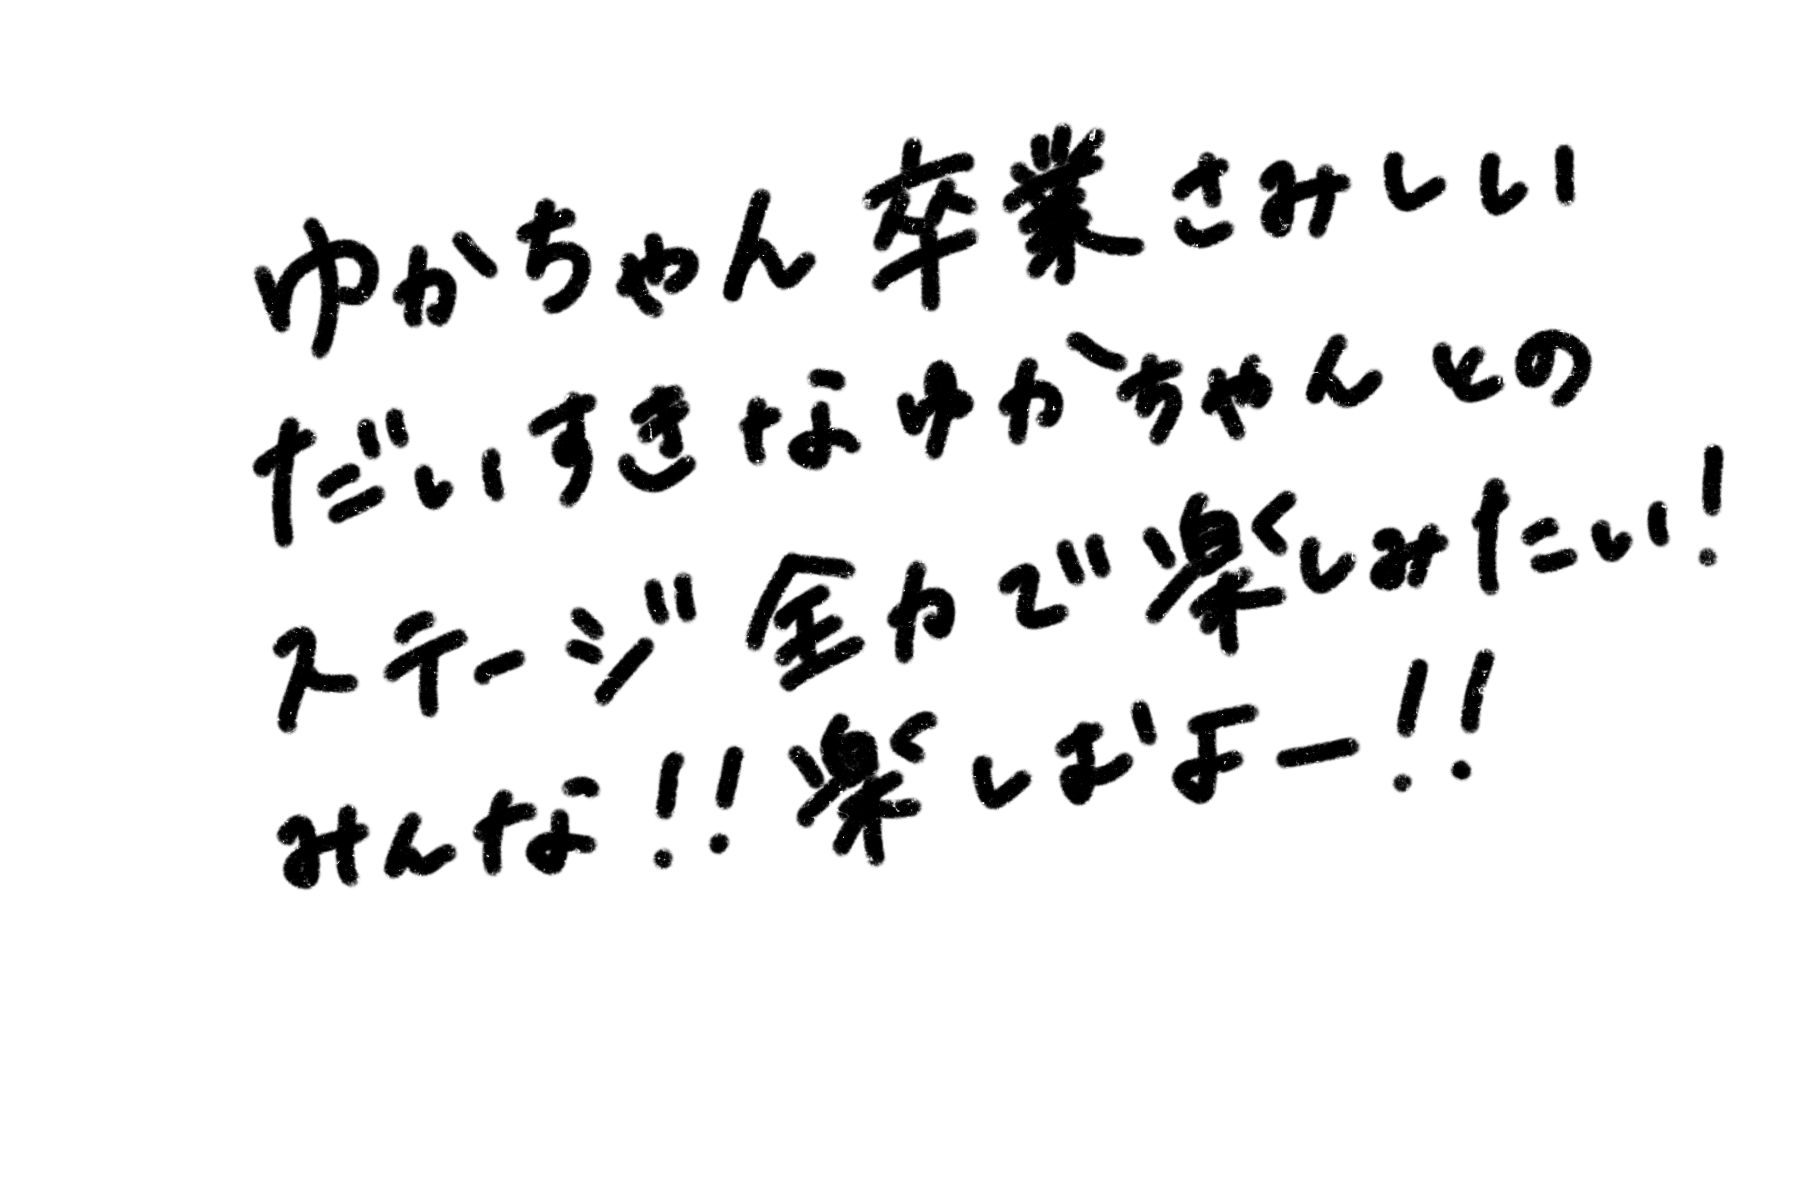 ゆかちゃん卒業さみしい
だいすきなゆかちゃんとの
ステージ全力で楽しみたい!
みんな!!楽しむよー!!